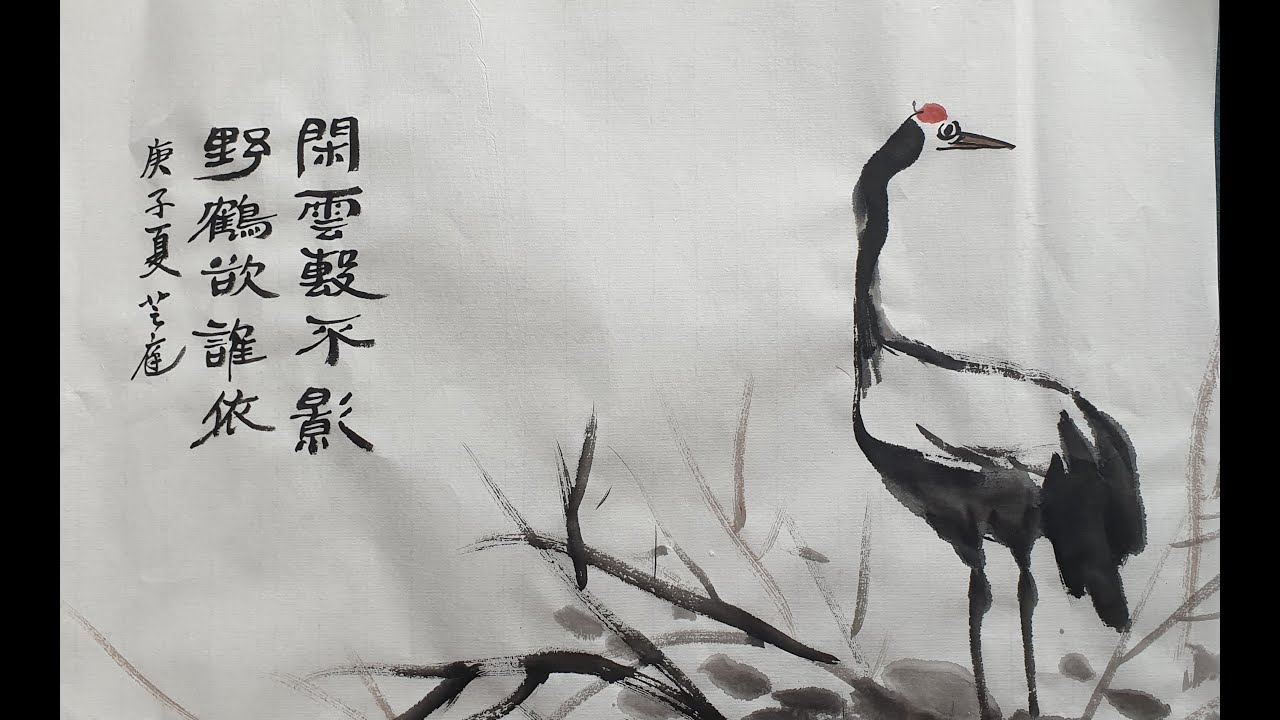 閑雲繫不影
野鶴欲誰依
庚子夏 芝庭